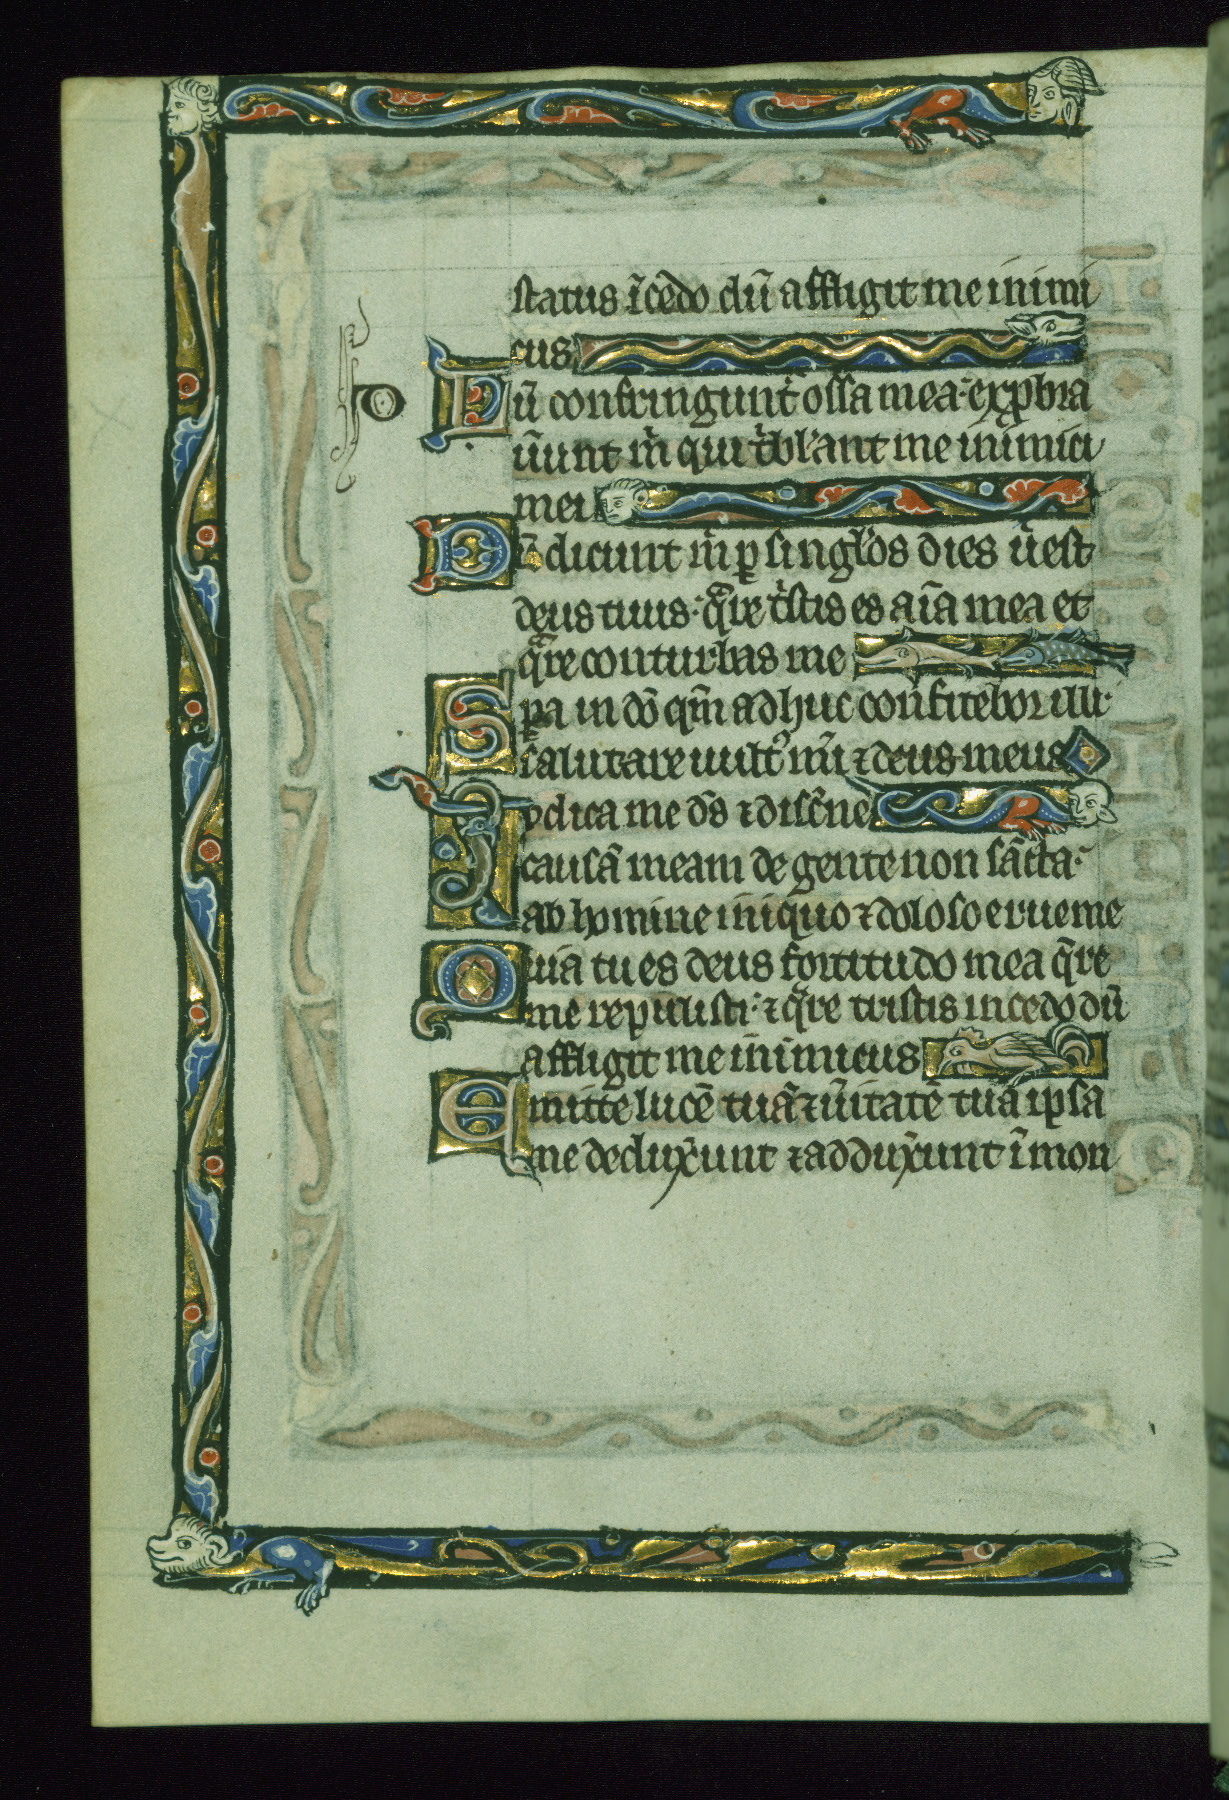 status īcedo dū affligit me inimi
cus
Dū confringunt᷑ ossa mea· exp̱bra
ūunt m̄ qui t̾bl'ant me inimici
mei
Dū dicunt m̄ ꝑ singl'os dies ūest
deus tuus· q̄re t̾stis es aīa mea et
q̄re conturbas me
Spa in dō qm̄ adhuc confitebor illi·
salutare uult᷒ mī ⁊ deus meus
Iudica me ds̄ ⁊ discn̄e
causā meam de gente non sāc̄ta·
ab homine iniquo ⁊ doloso erue me
Quia tu es deus fortitudo mea q̄re
me repulisti· ⁊ q̄re tristis incedo dū
affligit me inimicus
Emitte lucē tuā ⁊ ūitatē tuā ipsa
me dedux̄unt ⁊ addux̄unt ī mon